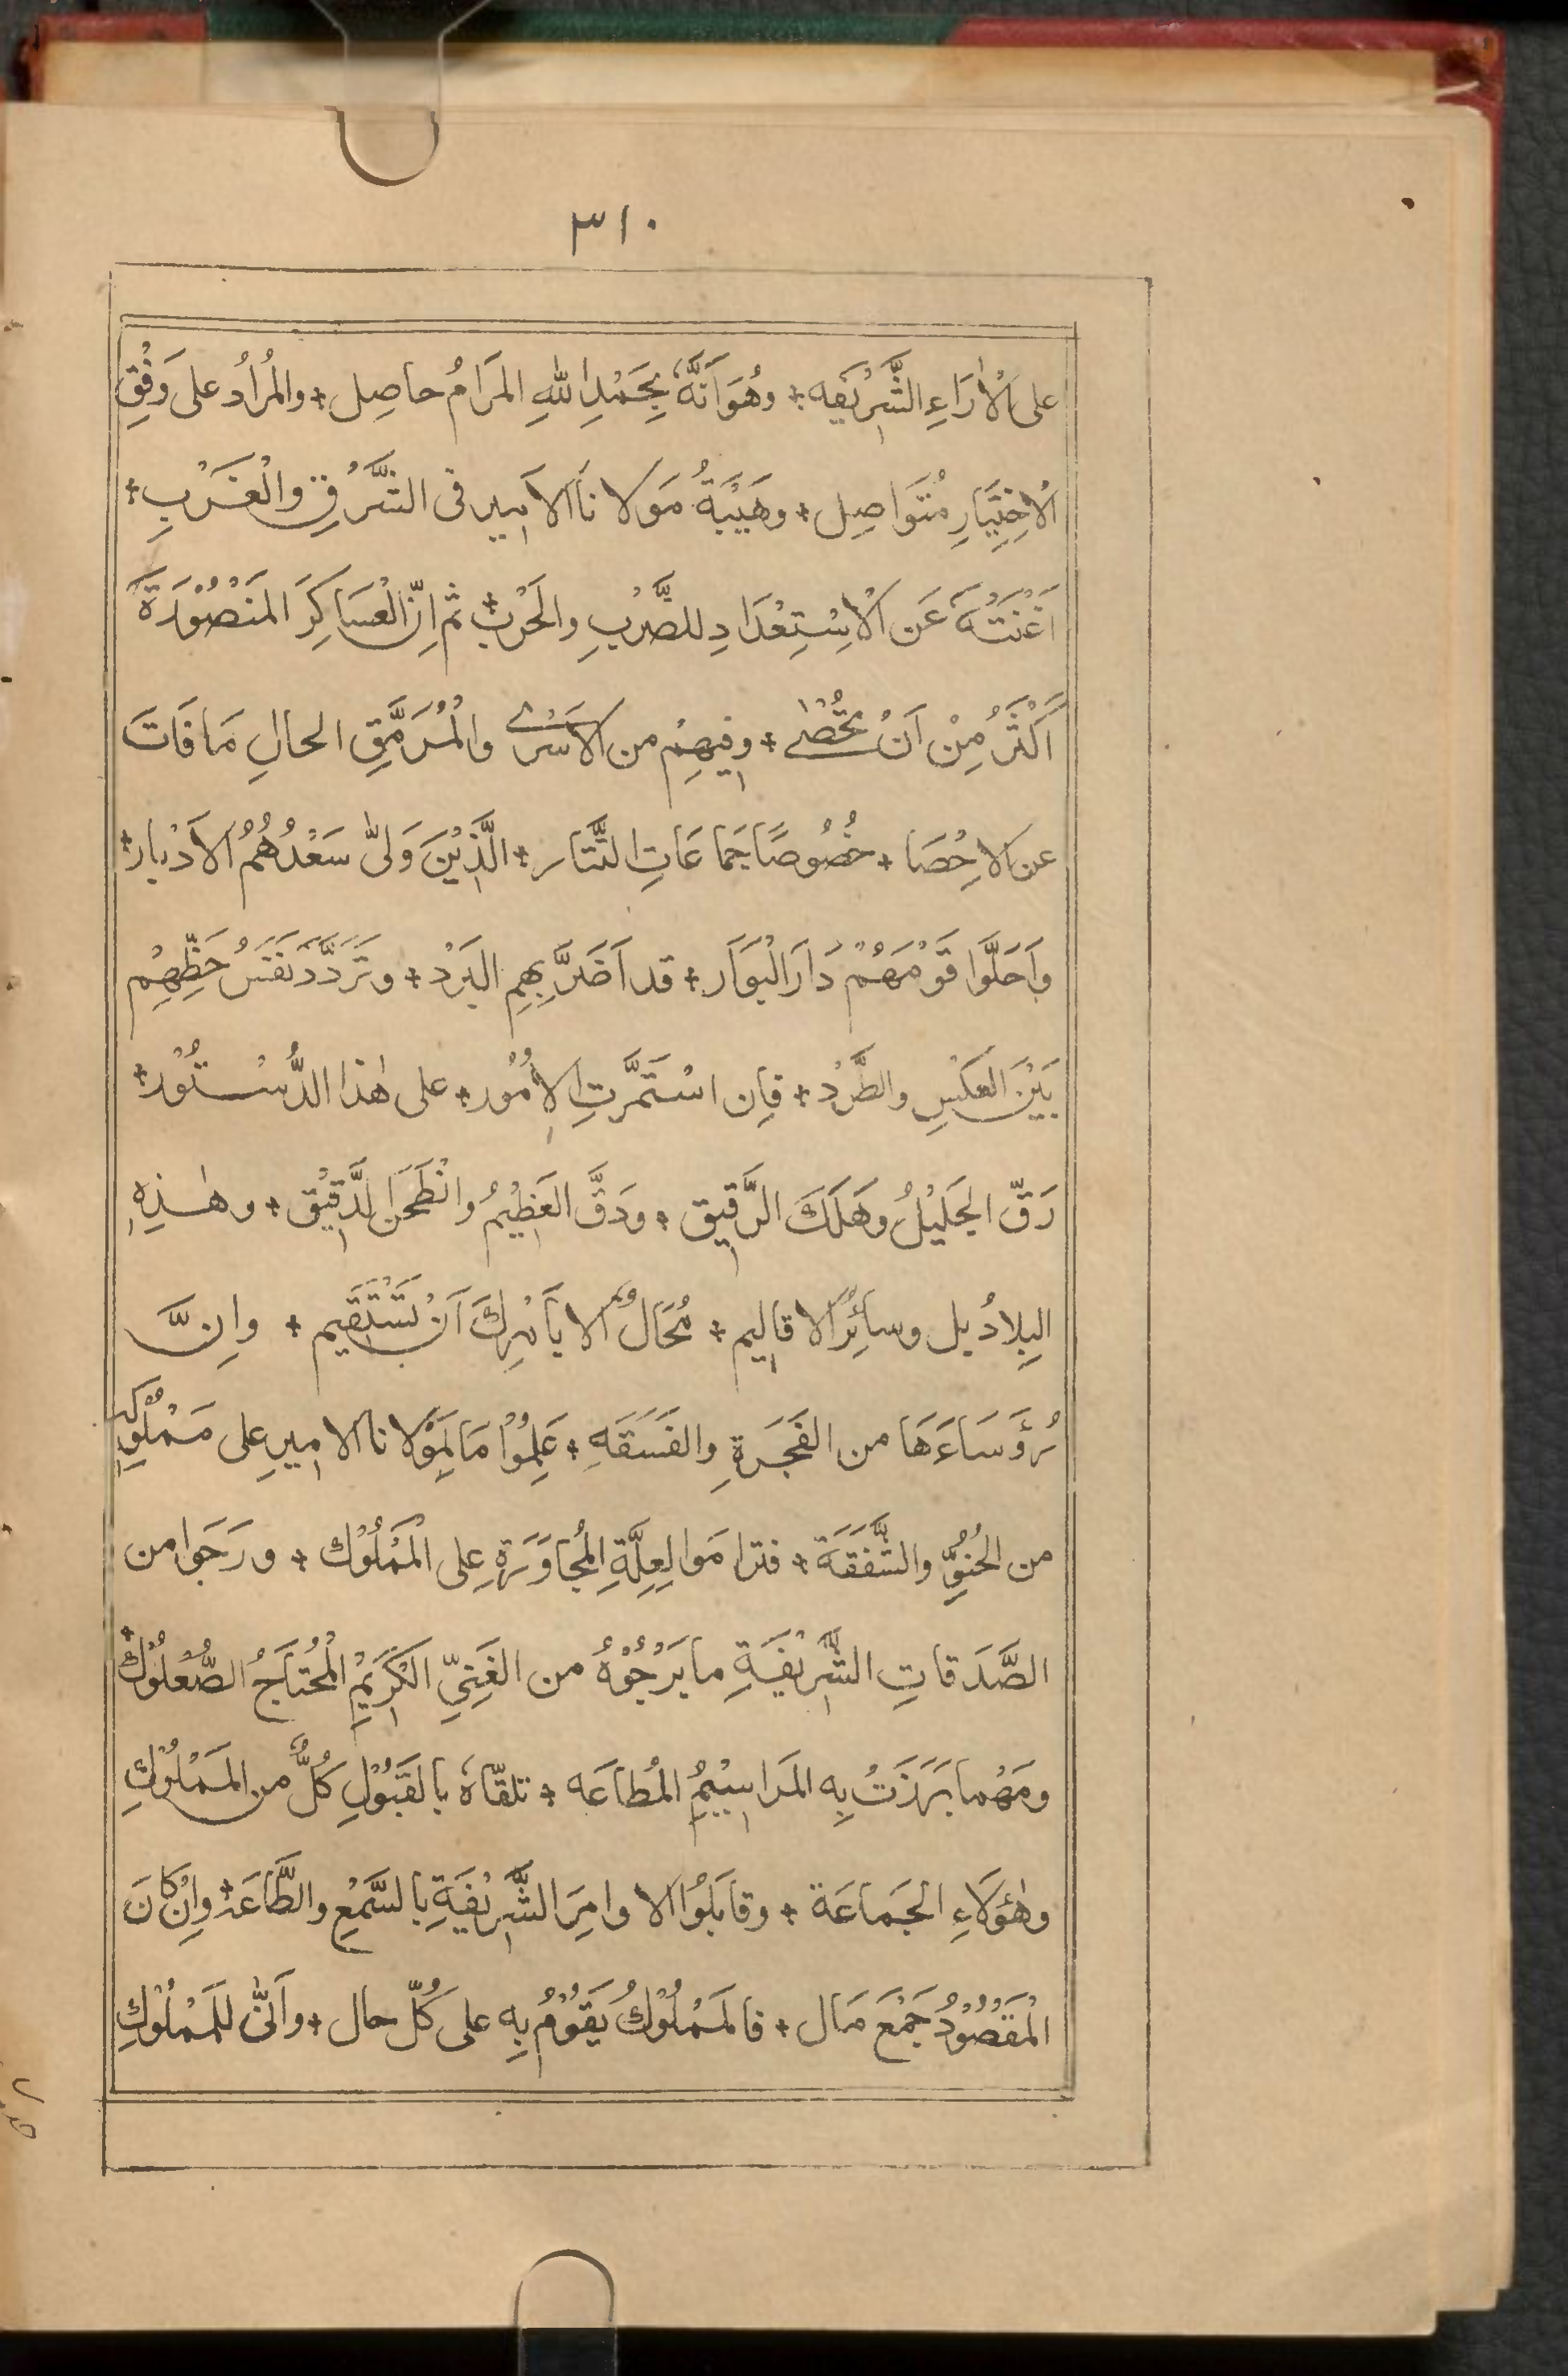 ٣١٠
على الْاٰرَاءِ الشَّرِيْفَه ÷ وهُوَ اَنَّهُ بِحَمْدِ اللهِ المَرَامُ حاصِل ÷ والمُرادُ على وَفْقِ
الْاِخْتِيَارِ مُتَوَاصِل ÷ وهَيْبَةُ مَوْلانَا الامِيرِ فى الشَّرْقِ والْغَرْبِ ÷
اَغْنَتْهُ عَنِ الْاِسْتِعْدَادِ للضَّرْبِ والحَرْبِ ÷ ثم اِنَّ الْعَسَاكِرَ المَنْصُوْرَةَ
اَكْثَرُ مِنْ اَنْ تُحْصٰى ÷ وفِيهِمْ من الاَسْرٰى والْمُرَمَّقِ الحالِ مَا فَاتَ
عن الاِحْصَا ÷ خُصُوصًا جَمَاعَاتِ التَّتَار ÷ الَّذِيْنَ وَلّٰى سَعْدُهُمُ الاَدْبار ÷
وَاَحَلَّوا قَوْمَهُمْ دَارَ الْبَوَار ÷ قد اَضَرَّ بِهِمِ البَرْد ÷ وتَرَدَّدَ نَفَسُ حَظِّهِمْ
بَيْنَ العَكْسِ والطَّرْد ÷ فاِن اسْتَمَرَّتِ الاُمُوْر ÷ على هٰذا الدُّسْتُوْر ÷
رَقّ الجَلِيْلُ وهَلَكَ الرَّقِيق ÷ ودَقَّ العَظِيْمُ وانْطَحَنَ الدَّقِيْق ÷ وهٰذِهِ
البِلادُ بل وسائِرُ الاقاليم ÷ مُحَالٌ الا بأَمْرِكَ اَنْ تَسْتَقِيم ÷ واِنَّ
رُؤَسَاءَهَا من الفَجَرَةِ والفَسَقَهِ ÷ عَلِمُوْا مَا لِمَوْلانا الامِيرِ على مَمْلُوْكِه
من الحُنُوِّ والشَّفَقَة ÷ فترامَوا لِعِلَّةِ المُجاوَرَةِ على الْمَمْلُوْك ÷ ورَجَوا من
الصَّدَقاتِ الشَّرِيْفَةِ ما يَرْجُوْهُ من الغَنِىِّ الكَرِيْمِ الْمُحْتاجُ الصُّعْلُوْك ÷
ومَهْما بَرَزَتْ بِه المَرَاسِيْمُ المُطاعَه ÷ تلقّاهُ بالقَبُوْلِ كُلٌّ من المَمْلُوْكِ
وهٰؤلَاءِ الجَماعَة ÷ وقابَلُوْا الاوامِرَ الشَّرِيْفَةِ بالسَّمْعِ والطَّاعَة ÷ واِنْ كانَ
الْمَقْصُوْدُ جَمْعَ مَال ÷ فالمَمْلُوْكُ يَقُوْمُ بِه على كُلّ حال ÷ وَاَنّٰى للمَمْلُوْكِ